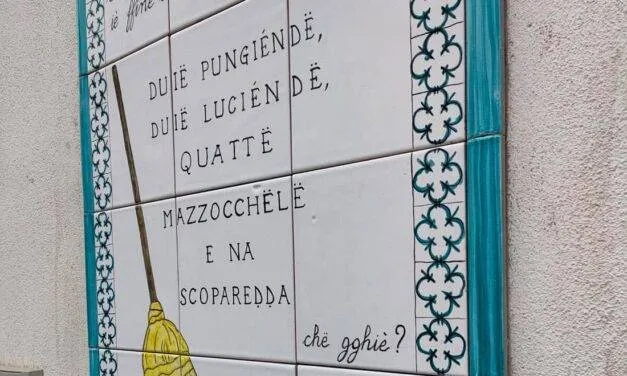 ië ffinë
DUIË PUNGIÉNDË,
DUIË LUCIÉNDË,
QUATTË
MAZZOCCHËLË
E NA
SCOPAREḌḌA
chë gghiè?